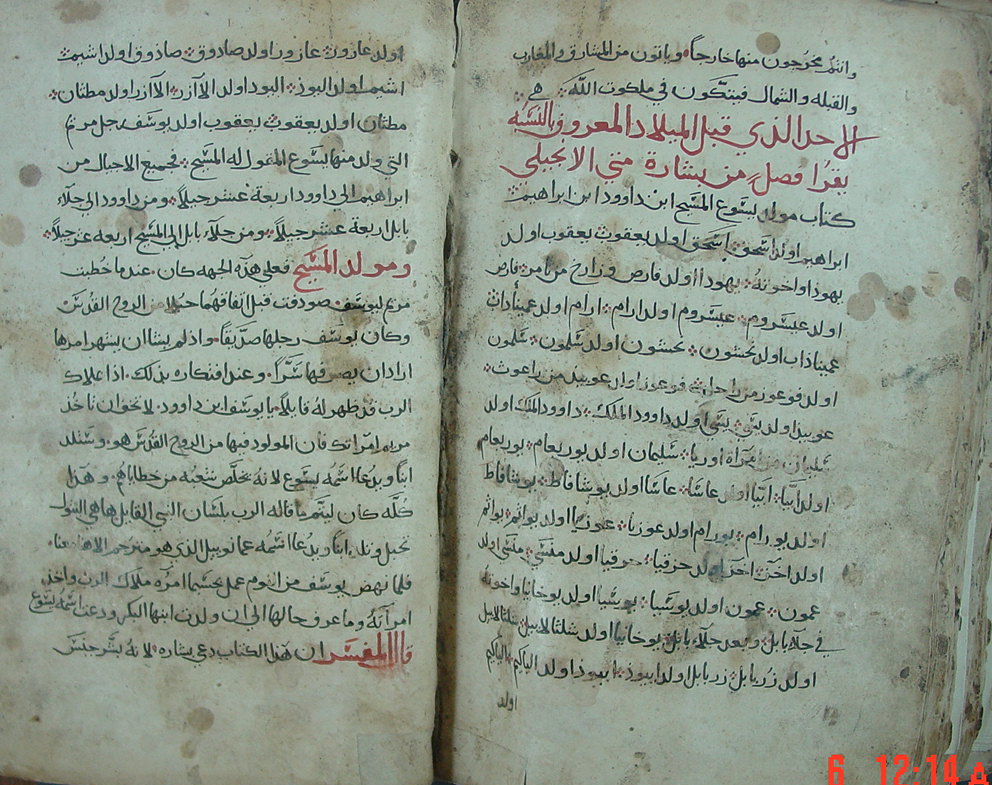 وانتم تخرجون منها خارجاً وياتون من المشارق والمغارب
والقبله والشمال فيتكون في ملكوت الله هي
الاحد الذي قبل الميلاد المعروف بالنسبه
يقرا فصل من بشارة متي الانجيلي
كتاب مولد يسوع المسيح ابن داوود ابن ابراهيم
ابراهيم اولد اسحق اسحق اولد يعقوب يعقوب اولد
يهوذا واخوته يهوذا اولد فارص وزارح من تامر فارص
اولد عيسروم عيسروم اولد ارام ارام اولد عميناداب
عميناداب اولد نحشون نحشون اولد شلمون شلمون
اولد فوعوز من راحاب فوعوز اولد عوبيد من راعوث
عوبيد اولد يسي يسي اولد داوود الملك داوود الملك اولد
سليمان من امرأة اوريا سليمان اولد يوربعام يوربعام
اولد ابيا ابيا اولد عاسا عاسا اولد يوشافاط يوشافاط
اولد يورام يورام اولد عوزيا عوزيا اولد يواثم يواثم
اولد احز احز اولد حزقيا حزقيا اولد منسي منسي اولد
عمون عمون اولد يوشيا يوشيا اولد يوخانيا واخوته
في جلا بابل وبعد جلاء بابل يوخانيا اولد شلتالاييل شلتالاييل
اولد زربابل زربابل اولد ابيوذ ابيوذ اولد الياكيم الياكيم
اولد
اولد عازور عازور اولد صادوق صادوق اولد اشيم
اشيم اولد اليوذ اليوذ اولد الآازر الآازر اولد مطثان
مطثان اولد يعقوب يعقوب اولد يوسف رجل مريم
التي ولد منها يسوع المقول له المسيح فجميع الاجيال من
ابراهيم الى داوود اربعة عشر جيلاً ومن داوود الى جلاء
بابل اربعة عشر جيلاً ومن جلاء بابل الى المسيح اربعة عشر جيلاً
ومولد المسيح فعلى هذه الجهه كان عندما خطبت
مريم ليوسف صودفت قبل اتفاقهما حبلا من الروح القدس
وكان يوسف رجلها صديقاً واذ لم يشا ان يشهر امرها
اراد ان يصرفها سراً وعند افتكاره بذلك اذا ملاك
الرب قد ظهر له قايلاً يا يوسف ابن داوود لا تخف ان تاخذ
مريم امراتك فان المولود فيها من الروح القدس هو وستلد
ابنا ويدعا اسمه يسوع لانه يخلص شعبه من خطاياهم وهذا
كله كان ليتم ما قاله الرب بلسان النبي القايل ها هي البتول
تحبل وتلد ابنا ويدعا اسمه عمانوييل الذي هو مترجم الاهنا معنا
فلما نهض يوسف من النوم عمل بحسبما امره ملاك الرب واخذ
امرأته وما عرف حالها الى ان ولدت ابنها البكر ودعت اسمه يسوع
قال المفسر ان هذا الكتاب دعي بشاره لانه بشر جنس
6 12:14 A